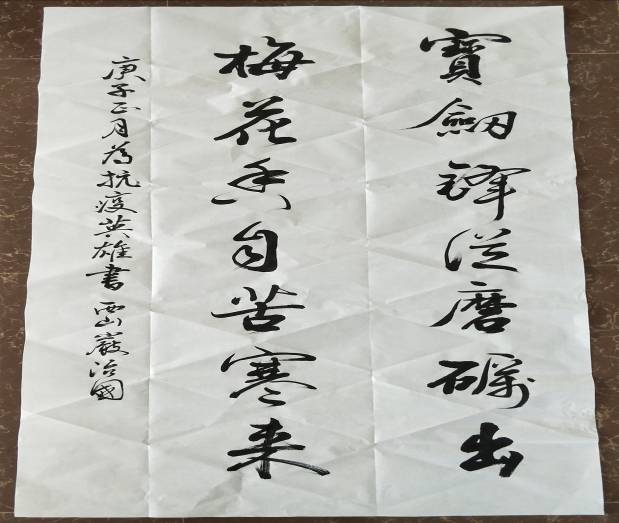 寶劔鋒從磨礪出
梅花香自苦寒来
庚子正月為抗疫英雄書 西山嚴治國